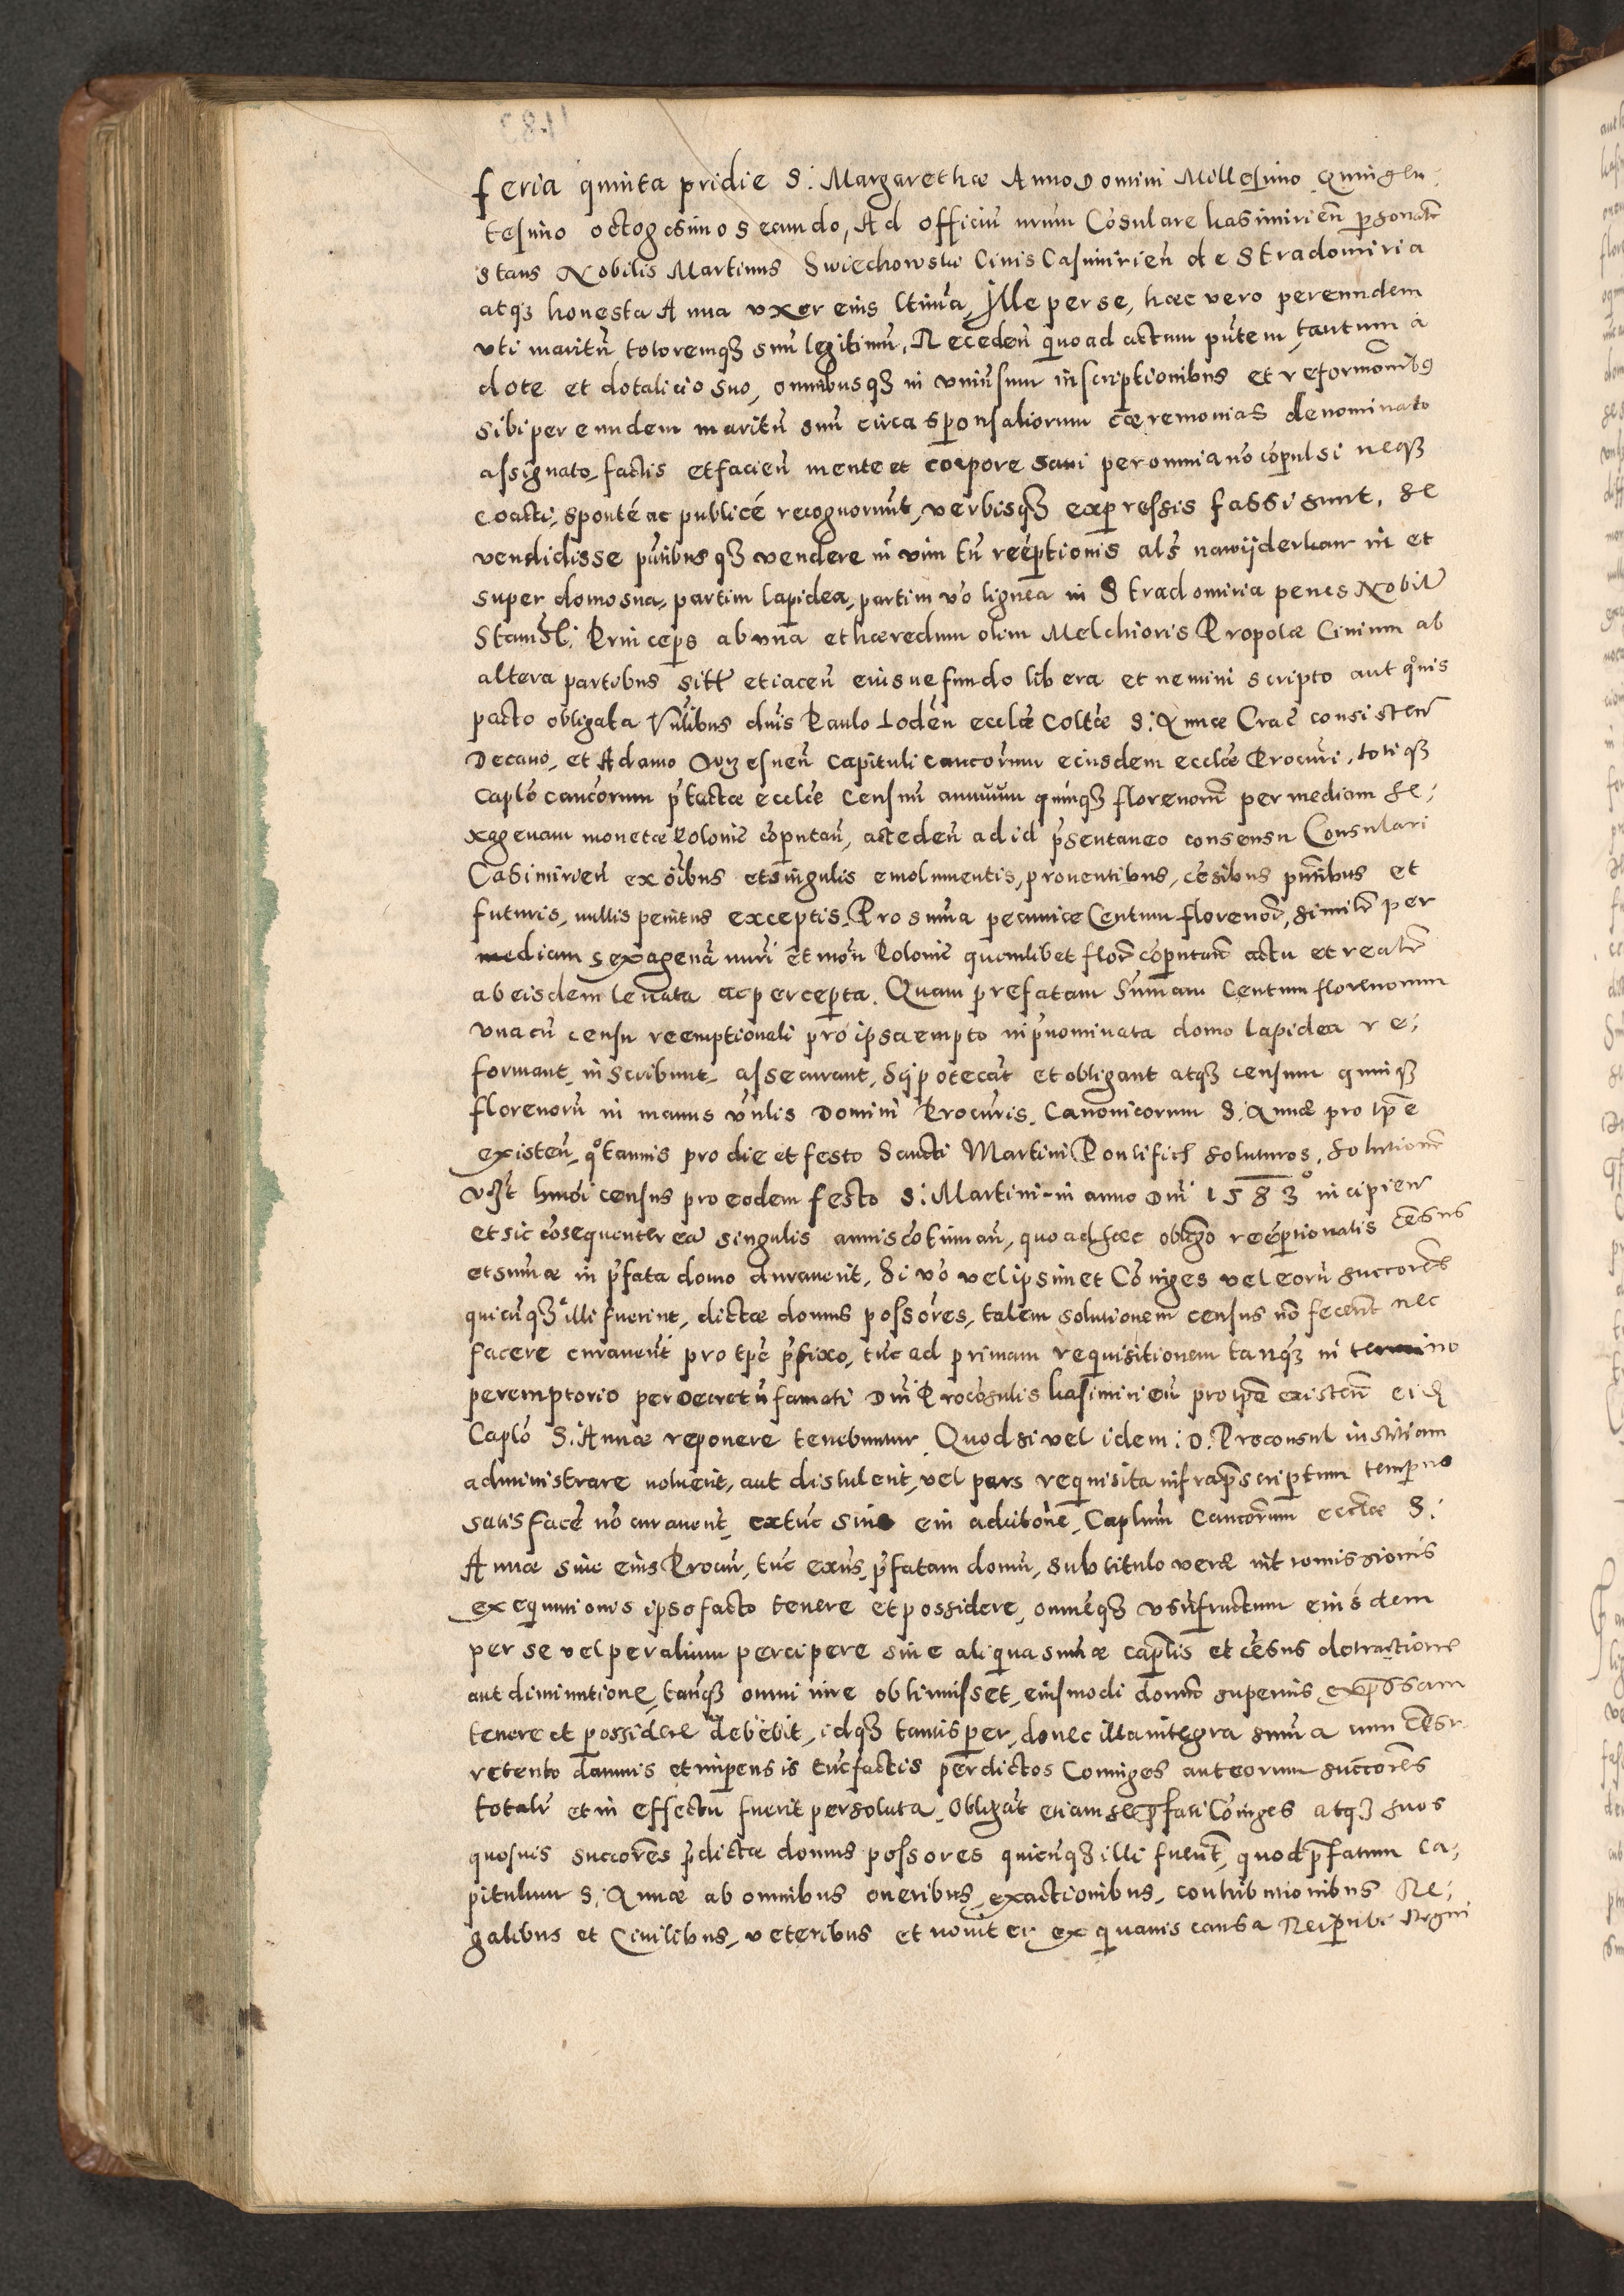 feria quinta pridie S: Margarethæ Anno Domini Millesimo Quingen:
tesimo octogesimo secundo, Ad officiū nr̄um Cōsulare kasimirieñ ꝑsonalr̄
stans Nobilis Martinus Swiechowski Civis Casimirieñ de Stradomiria
atqȝ honesta Anna vxor eius ltima, Ille per se, hæc vero per eundem
vti maritū tutoremqȝ suū legitimū, Recedeñ quo ad actum pñtem tantum a
dote et dotalicio suo, omnibusqȝ in vniuersum inscriptionibus et reformōnibȝ
sibi per eundem maritū suū circa sponsaliorum cæremonias denominato
assignato, factis et facieñ mente et corpore sani per omnia nō cōpulsi neqȝ
coacti, sponté ac publicé recognouerūt, verbisqȝ expressis fassi sunt, se
vendidisse pñtibusqȝ vendere in vim tñ reēptionis als nawijderkauf in et
super domo sua, partim lapidea, partim vō lignea in Stradomiria penes Nobilē
Stanisl: Princeps ab vna et hæredum olim Melchioris Propolæ Civium ab
altera partibus sitt et iaceñ eiusue fundo libera et nemini scripto aut quouis
pacto obligata Vnlibus dnīs Paulo Lodeñ ecclæ Coltæ S: Annæ Crac consisteñ
Decano, et Adamo capituli cancorum eiusdem ecclæ Procuri, totiqȝ
caplo cancorum p̄tactæ ecclæ Censum annuum quinqȝ florenorū per mediam se:
xagenam monetæ Polonic cōputañ, accedeñ ad id p̄sentaneo consensu Consulari
Casimirieñ ex oībus et singulis emolumentis, prouentibus, cēsibus pñtibus et
futuris, nullis penitus exceptis, Pro sum̄a pecuniæ Centum florenorū, similr̄ per
mediam sexagenā nūri et moñ Polonic quemlibet flor̄ cōputañ actu et realr̄
ab eisdem leuata ac percepta. Quam prefatam Sum̄am Centum florenorum
vna cū censu reemptionali pro ipsa empto in p̄nominata domo lapidea re:
formant, inscribunt, assecurant, hÿpotecāt et obligant atqȝ censum quinqȝ
florenorū in manus Vnlis Domini Procuris, Canonicorum S: Annæ pro tp̄e
existeñ, quotannis pro die et festo Sancti Martini Pontificis soluturos, solutionē
vero hmōi census pro eodem festo S: Martini in anno Dnī 1583° incipieñ
et sic cōsequenter eā singulis annis cōtinuañ, quoad hæc obligō reēptionalis cēsus
et sum̄æ in p̄fata domo durauerit, Si vō vel ipsimet Cōniuges vel eorū succores
quicūqȝ illi fuerint, dictæ domus possōres, talem solutionem census nō fecerīt nec
facere curauerīt pro tp̄e p̄fixo, tūc ad primam requisitionem tanqȝ in termino
peremptorio per decretū famati Dnī Procōsulis kasimirieñ pro tp̄e existeñ eidē
Caplo S: Annæ reponere tenebuntur Quod si vel idem: D: Proconsul iustitiam
administrare noluerit, aut distulerit, vel pars requisita infra p̄scriptum tempus
satisface nō curauerit extūc sine eius aditione, Caplum Cancorum ecclæ S:
Annæ siue eius Procur, tūc exñs, p̄fatam domū, sub titulo veræ intromissionis
exequutionis ipso facto tenere et possidere, om̄eqȝ vsūfructum eiusdem
per se vel per alium percipere sine aliqua sum̄æ capitlis et cēsus detractione
aut diminutione, tanqȝ omni iure obtinuisset, eiusmodi domū superius exp̄ssam
tenere et possidere debebit, idqȝ tamisper, donec illa integra sum̄a cum cēsu
retento damnis et impensis tūc factis per dictos Coniuges aut eorum succores
totalr̄ et in effectu fuerit persoluta, Obligāt etiam se p̄fati Cōiuges atqȝ suos
quosuis succores p̄dictæ domus possores quicūqȝ illi fuerīt, quod p̄fatum Ca:
pitulum S: Annæ ab omnibus oneribus, exactionibus, contributionibus Re:
galibus et Ciuilibus, veteribus et nouiter ex quauis causa Reipublicæ Regni